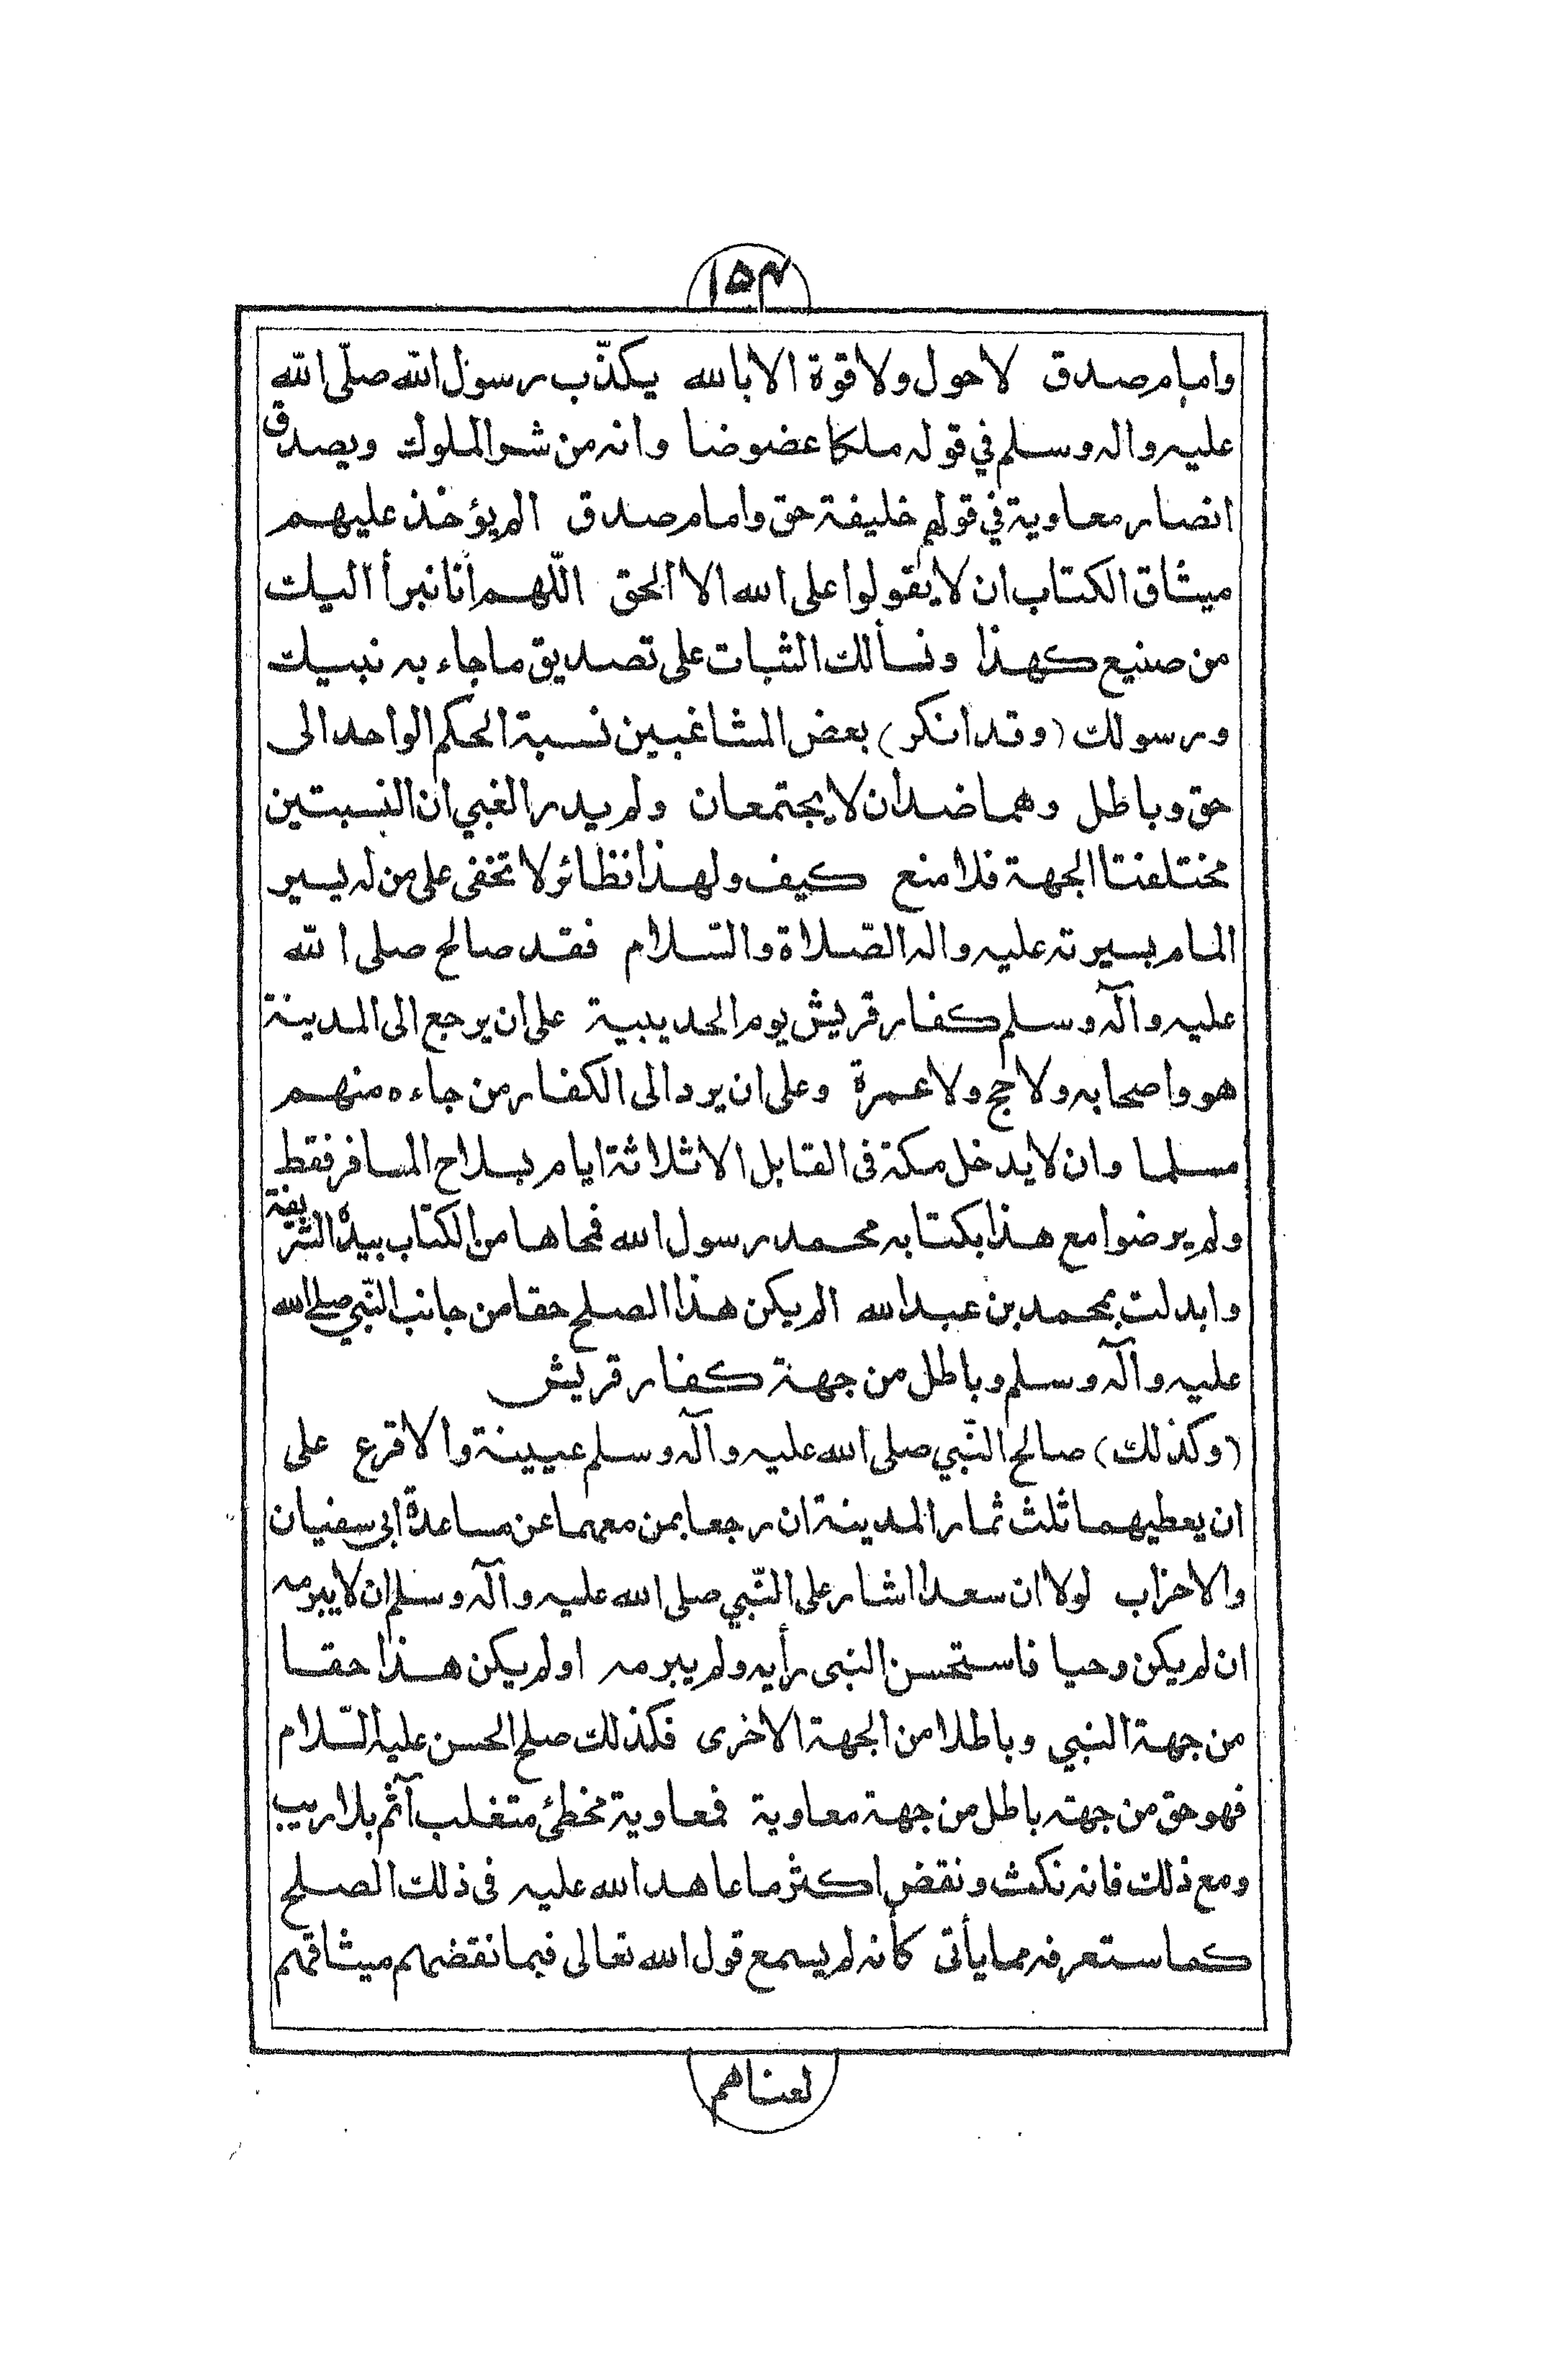 ١٥٤
وامام صدق لاحول ولا قوة الا بالله يكذّب رسول الله صلّى الله
عليه واله وسلم في قوله ملكا عضوضا وانه من شر الملوك ويصدق
انصار معاوية في قولهم خليفة حق وامام صدق الم يؤخذ عليهم
ميثاق الكتاب ان لا يقولوا على الله الا الحق اللّهم أنا نبرأ اليك
من صنيع كهذا ونسألك الثبات على تصديق ما جاء به نبيك
ورسولك (وقد أنكر) بعض المشاغبين نسبة الحكم الواحد الى
حق وباطل وهما ضدان لا يجتمعان ولم يدر الغبي ان النسبتين
مختلفتا الجهة فلا منع كيف ولهذا نظائر لا تخفى على من له يسير
المام بسيرته عليه واله الصّلاة والسّلام فقد صالح صلى الله
عليه وآله وسلم كفار قريش يوم الحديبية على ان يرجع الى المدينة
هو واصحابه ولا حج ولا عمرة وعلى ان يرد الى الكفار من جاءه منهم
مسلما وان لا يدخل مكة فى القابل الا ثلاثة ايام بسلاح المسافر فقط
ولم يرضوا مع هذا بكتابه محمد رسول الله فمحاها من الكتاب بيده الشريفة
وابدلت بمحمد بن عبد الله الم يكن هذا الصلح حقا من جانب النّبي صلى الله
عليه وآله وسلم وباطل من جهة كفار قريش
(وكذلك) صالح النّبي صلى الله عليه وآله وسلم عيينة والاقرع على
ان يعطيهما ثلث ثمار المدينة ان رجعا بمن معهما عن مساعدة ابى سفيان
والاحزاب لولا ان سعدا اشار على النّبي صلى الله عليه وآله وسلم ان لا يبرمه
ان لم يكن وحيا فاستحسن النبى رأيه ولم يبرمه اولم يكن هذا حقا
من جهة النبي وباطلا من الجهة الاخرى فكذلك صلح الحسن عليه السّلام
فهو حق من جهته باطل من جهة معاوية فمعاوية مخطئ متغلب آثم بلا ريب
ومع ذلك فانه نكث ونقض اكثر ما عاهد الله عليه فى ذلك الصلح
كما ستعرفه مما يأتى كأنه لم يسمع قول الله تعالى فبما نقضهم ميثاقهم
لعناهم